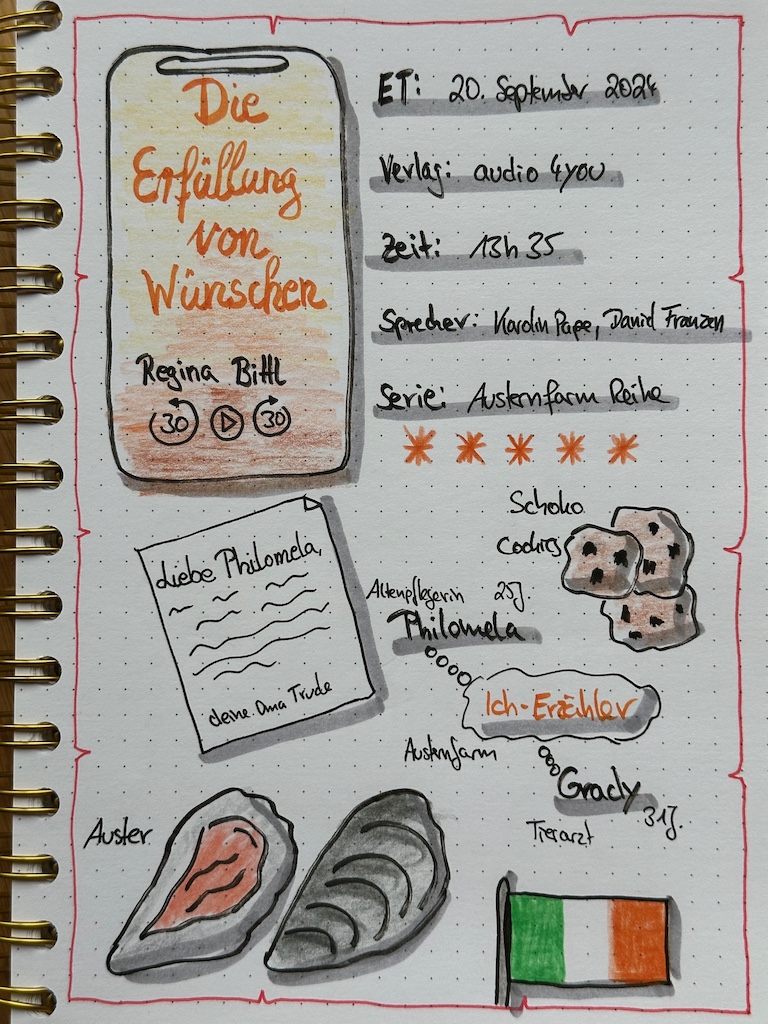 Die
Erfüllung
von
Wünschen
Regina Bittl
30 30
ET: 20. September 2024
Verlag: audio 4you
Zeit: 13h 35
Sprecher: Karolin Pape, David Franzen
Serie: Austernfarm Reihe
Liebe Philomela,
deine Oma Trude
Schoko
Cookies
Altenpflegerin 25J.
Philomela
Ich-Erzähler
Austernfarm
Grady
31J.
Tierarzt
Auster